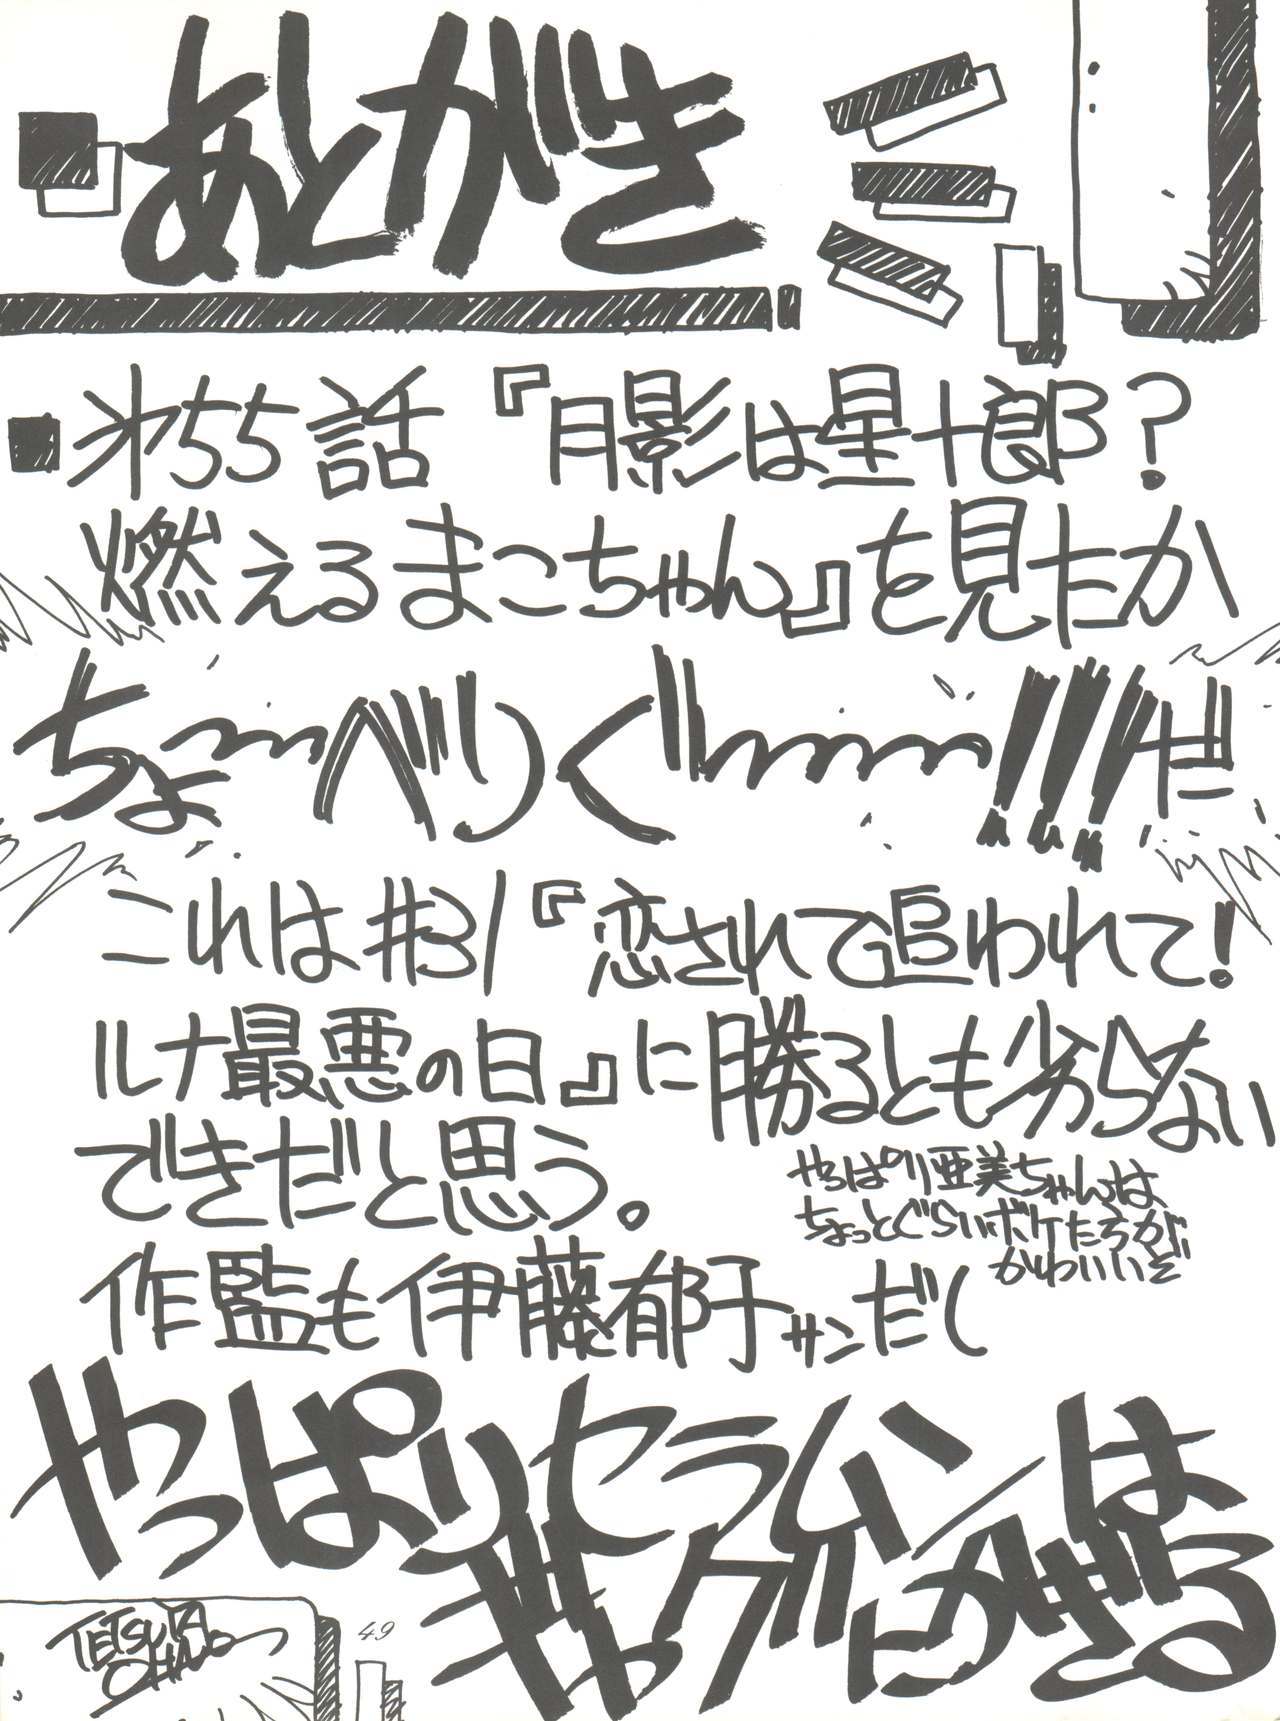 あとがき
■㐧55話『月影は星十郎?
燃えるまこちゃん』を見たか
ちょ〜べりぐ〜〜!!!だ
これは#31『恋されて追われて!
ルナ最悪の日』に勝るとも劣らない
できだと思う。
やっぱり亜美ちゃんは
ちょっとぐらいボケたうが
かわいいぞ
作監も伊藤郁子サンだし
やっぱりセラムンは
ギャグにかぎる
TETSUYA
49